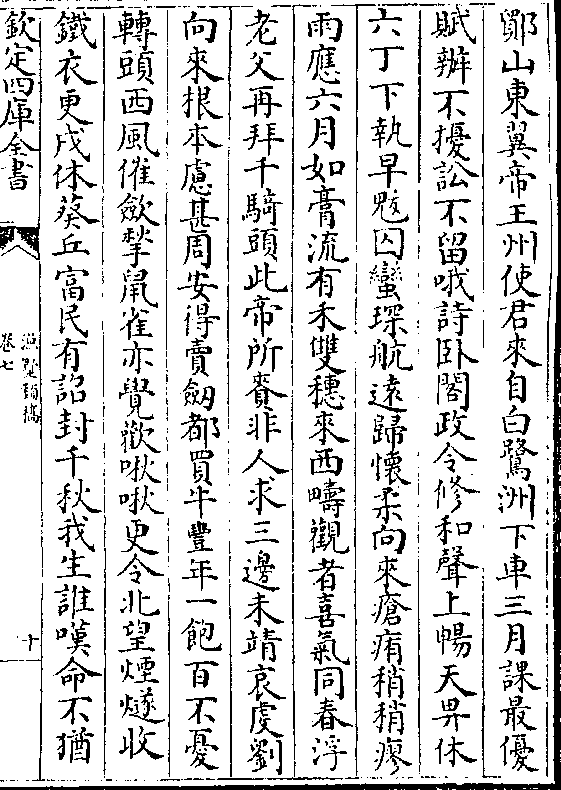 鄮山東翼帝王州使君來自白鷺洲下車三月課最優
賦辦不擾訟不留哦詩卧閣政令修和聲上暢天畀休
六丁下執旱魃囚蠻琛航逺歸懷柔向來瘡痏稍稍瘳
雨應六月如膏流有禾雙穗來西疇觀者喜氣同春浮
老父再拜千騎頭此帝所賚非人求三邊未靖哀虔劉
向來根本慮甚周安得賣劒都買牛豐年一飽百不憂
轉頭西風催斂揫䑕雀亦覺歡啾啾更令北望煙燧收
鐵衣更戍休葵丘富民有詔封千秋我生誰嘆命不猶
欽定四庫全書
卷七
十